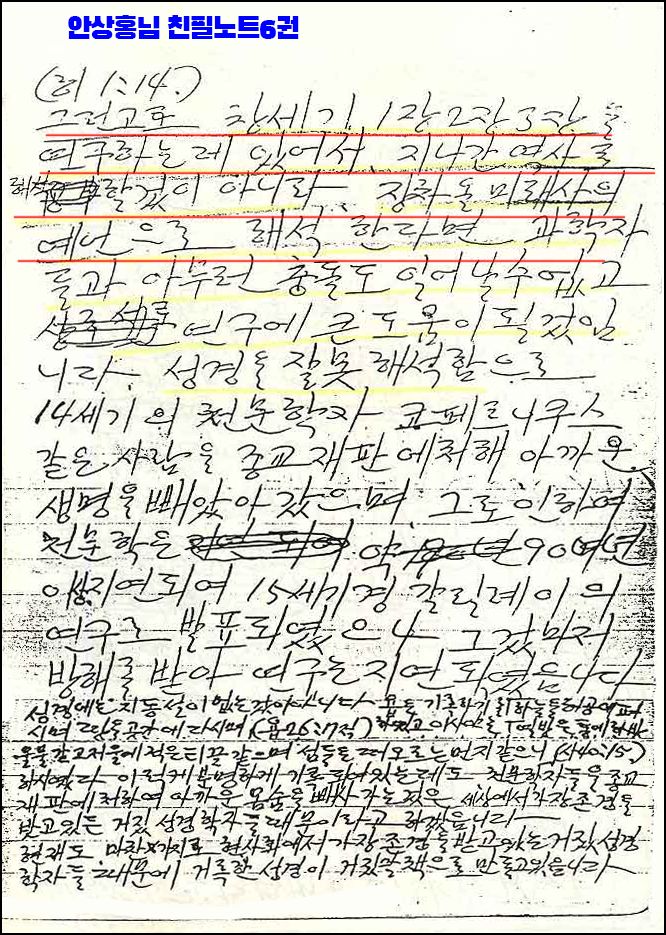 안상홍님 친필노트6권
(히 1:14.)
그런고로 창세기 1장2장3장 을
연구하는데 있어서 지나간 역사를
해석 할것이 아니라 장차 올 미래사의
예언으로 해석 한다면 과학자
들과 아무런 충돌도 일어날수 없고
연구에 큰 도움이 될것입
니다. 성경을 잘못 해석함으로
14세기의 천문학자 코페르니쿠스
같은 사람을 종교재판에 처해 아까운
생명을 빼앗아 갔으며 그로 인하여
천문학은 약 90여년
이상 지연되여 15세기경 갈릴레이의
연구로 발표되였으나 그것마저
방해를 받아 연구는 지연되였습니다
성경에는 지동설이 없는것이 아니다 욥은 기록하기를 하늘을 허공에 펴
시며 땅을 공간에 다시며 (욥26:7절) 하였고 이사야는 열방은 통에 한방
울물같고 저울에 적은 티끌같으며 섬들은 떠오르는 먼지같으니 (사40:15.)
하시였다 이렇게 분명하게 기록되여 있는데도 천문학자들을 종교
재판에 처하여 아까운 목숨을 빼사가는것은 세상에서 가장 존경을
받고있는 거짓 성경학자들 때문이라고 하겠습니다
현재도 마찬가지로 현사회에서 가장 존경을 받고 있는 거짓 성경
학자들 때문에 거룩한 성경이 거짓말 책으로 만들고 있읍니다